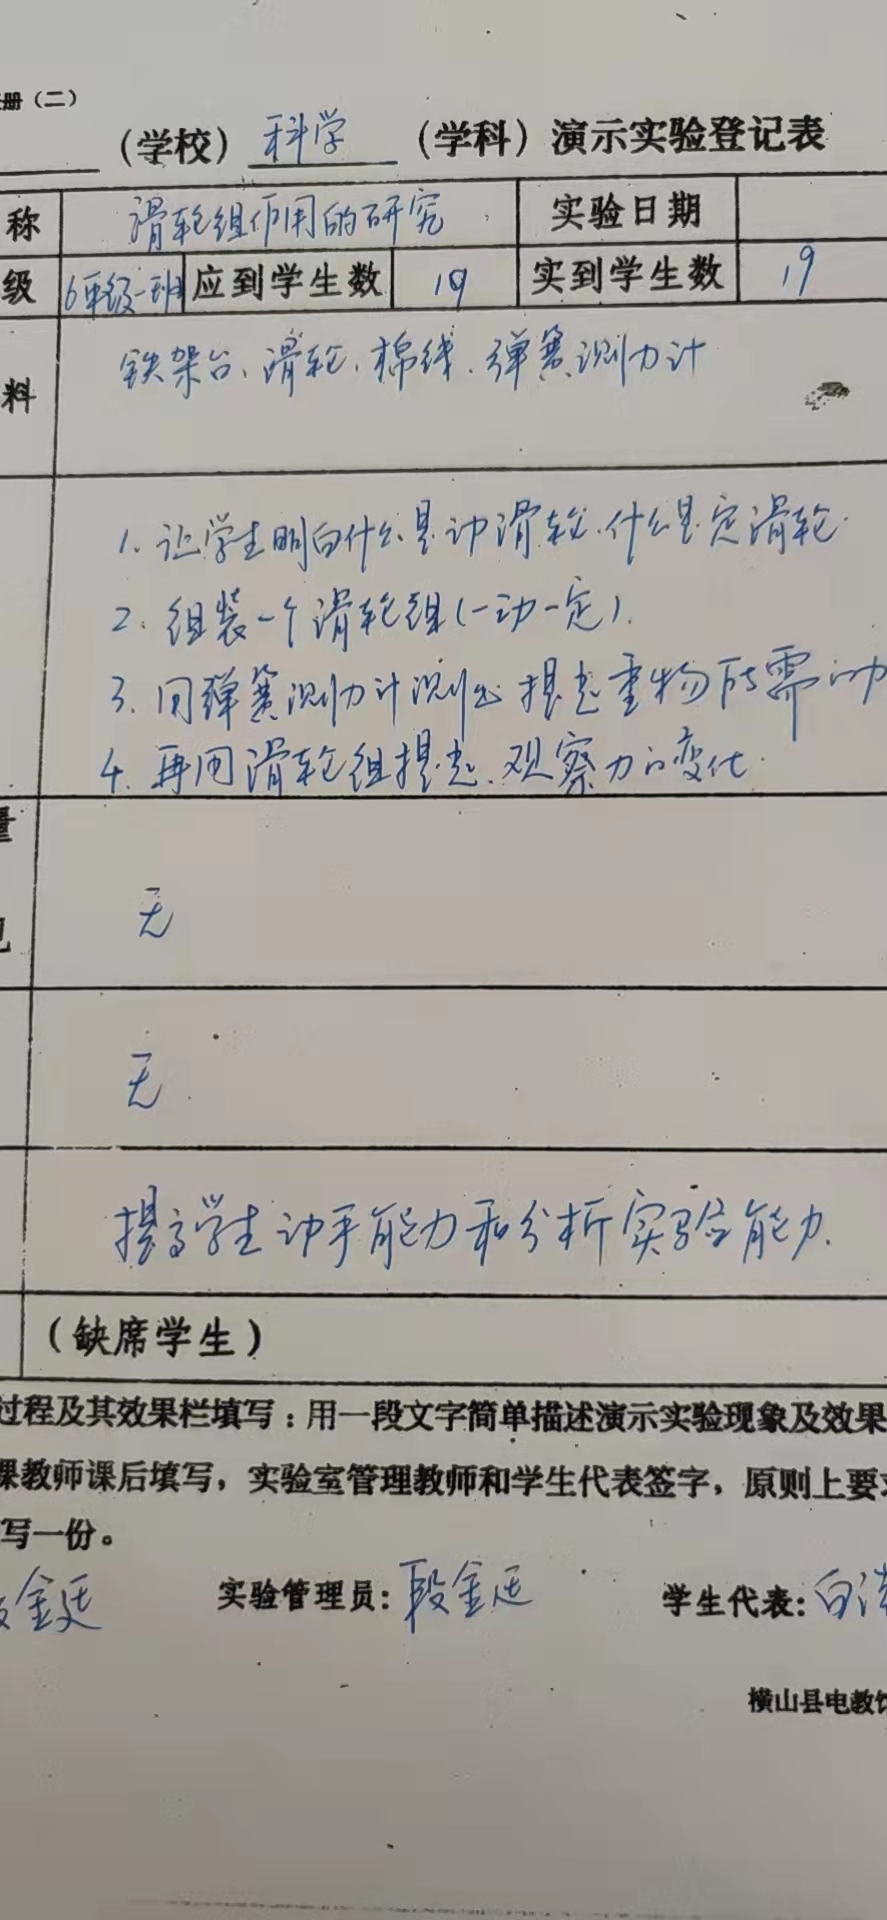 册（二）
（学校）科学（学科）演示实验登记表
称 滑轮组作用的研究 实验日期
级 6年级一班 应到学生数 19 实到学生数 19
料 铁架台、滑轮、棉线、弹簧测力计
1. 让学生明白什么是动滑轮.什么是定滑轮.
2. 组装一个滑轮组(一动一定).
3. 用弹簧测力计测出提起重物所需的力
4. 再用滑轮组提起.观察力的变化.
量
无
无
提高学生动手能力和分析实验能力.
（缺席学生）
过程及其效果栏填写：用一段文字简单描述演示实验现象及效果
课教师课后填写，实验室管理教师和学生代表签字，原则上要
写一份。
金廷 实验管理员：段金廷 学生代表：白
横山县电教